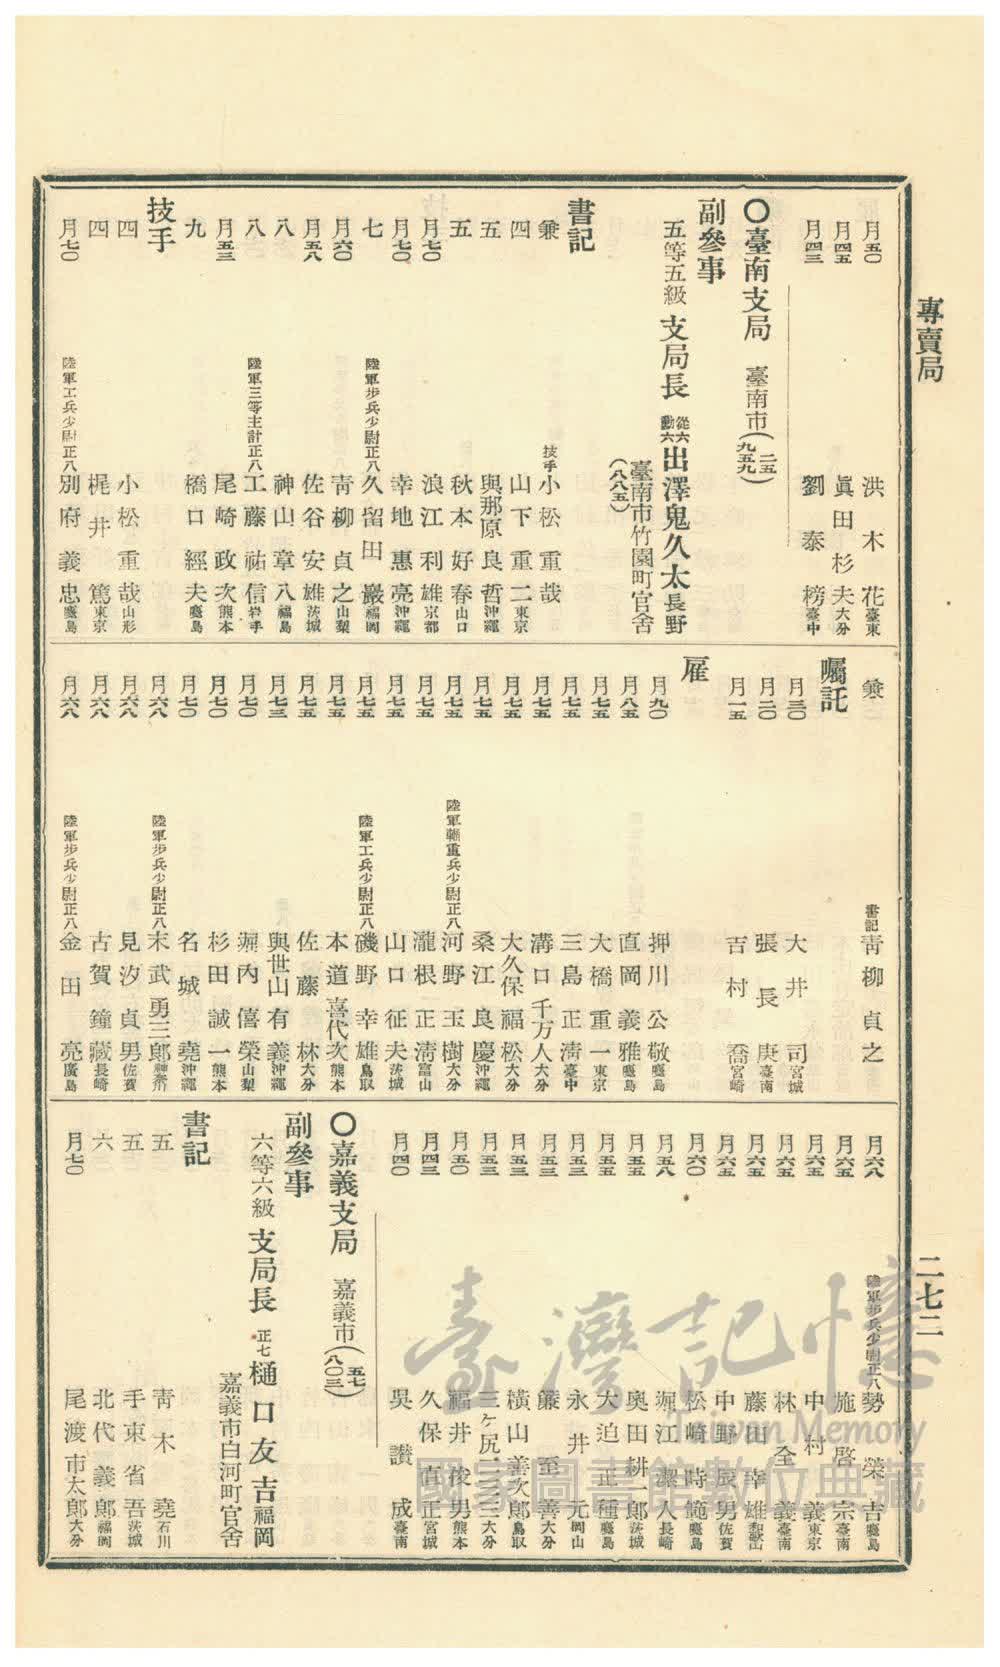 專賣局
二七二
月五〇 洪木花 臺東
月四五 眞田杉夫 大分
月四三 劉泰榜 臺中
〇臺南支局 臺南市(二五九五九)
副參事
五等五級 支局長 從六勳六 出澤鬼久太 長野
臺南市竹園町官舍(八八五)
書記
兼 技手 小松重哉
四 山下重二 東京
五 與那原良哲 沖繩
五 秋本好春 山口
月七〇 浪江利雄 京都
月七〇 幸地惠亮 沖繩
七 陸軍步兵少尉正八 久留田巖 福岡
月六〇 靑柳貞之 山梨
月五八 佐谷安雄 茨城
八 神山章八 福島
八 陸軍三等主計正八 工藤祐信 岩手
月五三 尾崎政次 熊本
九 橋口經夫 麑島
技手
四 小松重哉 山形
四 梶井篤 東京
月七〇 陸軍工兵少尉正八 別府義忠 麑島
兼 書記 靑柳貞之
囑託
月三〇 大井司 宮城
月二〇 張長庚 臺南
月一五 吉村喬 宮崎
雇
月九〇 押川公敬 麑島
月八五 直岡義雅 麑島
月七五 大橋重一 東京
月七五 三島正淸 臺中
月七五 溝口千万人 大分
月七五 大久保福松 大分
月七五 桑江良慶 沖繩
月七五 陸軍輜重兵少尉正八 河野玉樹 大分
月七五 瀧根正淸 富山
月七五 山口征夫 茨城
月七五 陸軍工兵少尉正八 磯野幸雄 鳥取
月七五 本道喜代次 熊本
月七五 佐藤林 大分
月七三 與世山有義 沖繩
月七〇 堀內僖榮 山梨
月七〇 杉田誠一 熊本
月七〇 名城堯 沖繩
月六八 陸軍步兵少尉正八 末武勇三郞 神奈川
月六八 見汐貞男 佐賀
月六八 古賀鐘藏 長崎
月六八 陸軍步兵少尉正八 金田亮 廣島
月六八 陸軍步兵少尉正八 勞榮吉 麑島
月六五 施啓宗 臺南
月六五 中村義 東京
月六五 林全義 臺南
月六五 藤田幸雄 和歌山
月六五 中野辰男 佐賀
月六〇 松崎時範 麑島
月五八 堀江潔人 長崎
月五五 奧田耕一郞 茨城
月五五 大迫正種 麑島
月五三 永井元 岡山
月五三 簾至善 大分
月五三 橫山善次郞 鳥取
月五三 三ケ尻二三 大分
月五〇 福井俊男 熊本
月四三 久保直正 宮城
月四〇 吳讃成 臺南
〇嘉義支局 嘉義市(五七八〇三)
副參事
六等六級 支局長 正七 樋口友吉 福岡
嘉義市白河町官舍
書記
五 靑木堯 石川
五 手東省吾 茨城
六 北代義郞 福岡
月七〇 尾渡市太郞 大分
臺灣記憶
Taiwan Memory
國家圖書館數位典藏